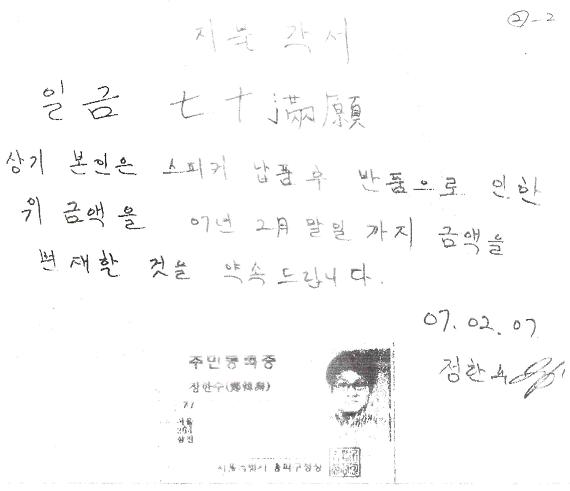 ②-2
지불 각서
일금 七十滿願
상기 본인은 스피커 납품 후 반품으로 인한
위 금액을 07년 2月 말일 까지 금액을
변재할 것을 약속드립니다.
07. 02. 07
정한수
주민등록증
정한수(鄭韓壽)
71
서울